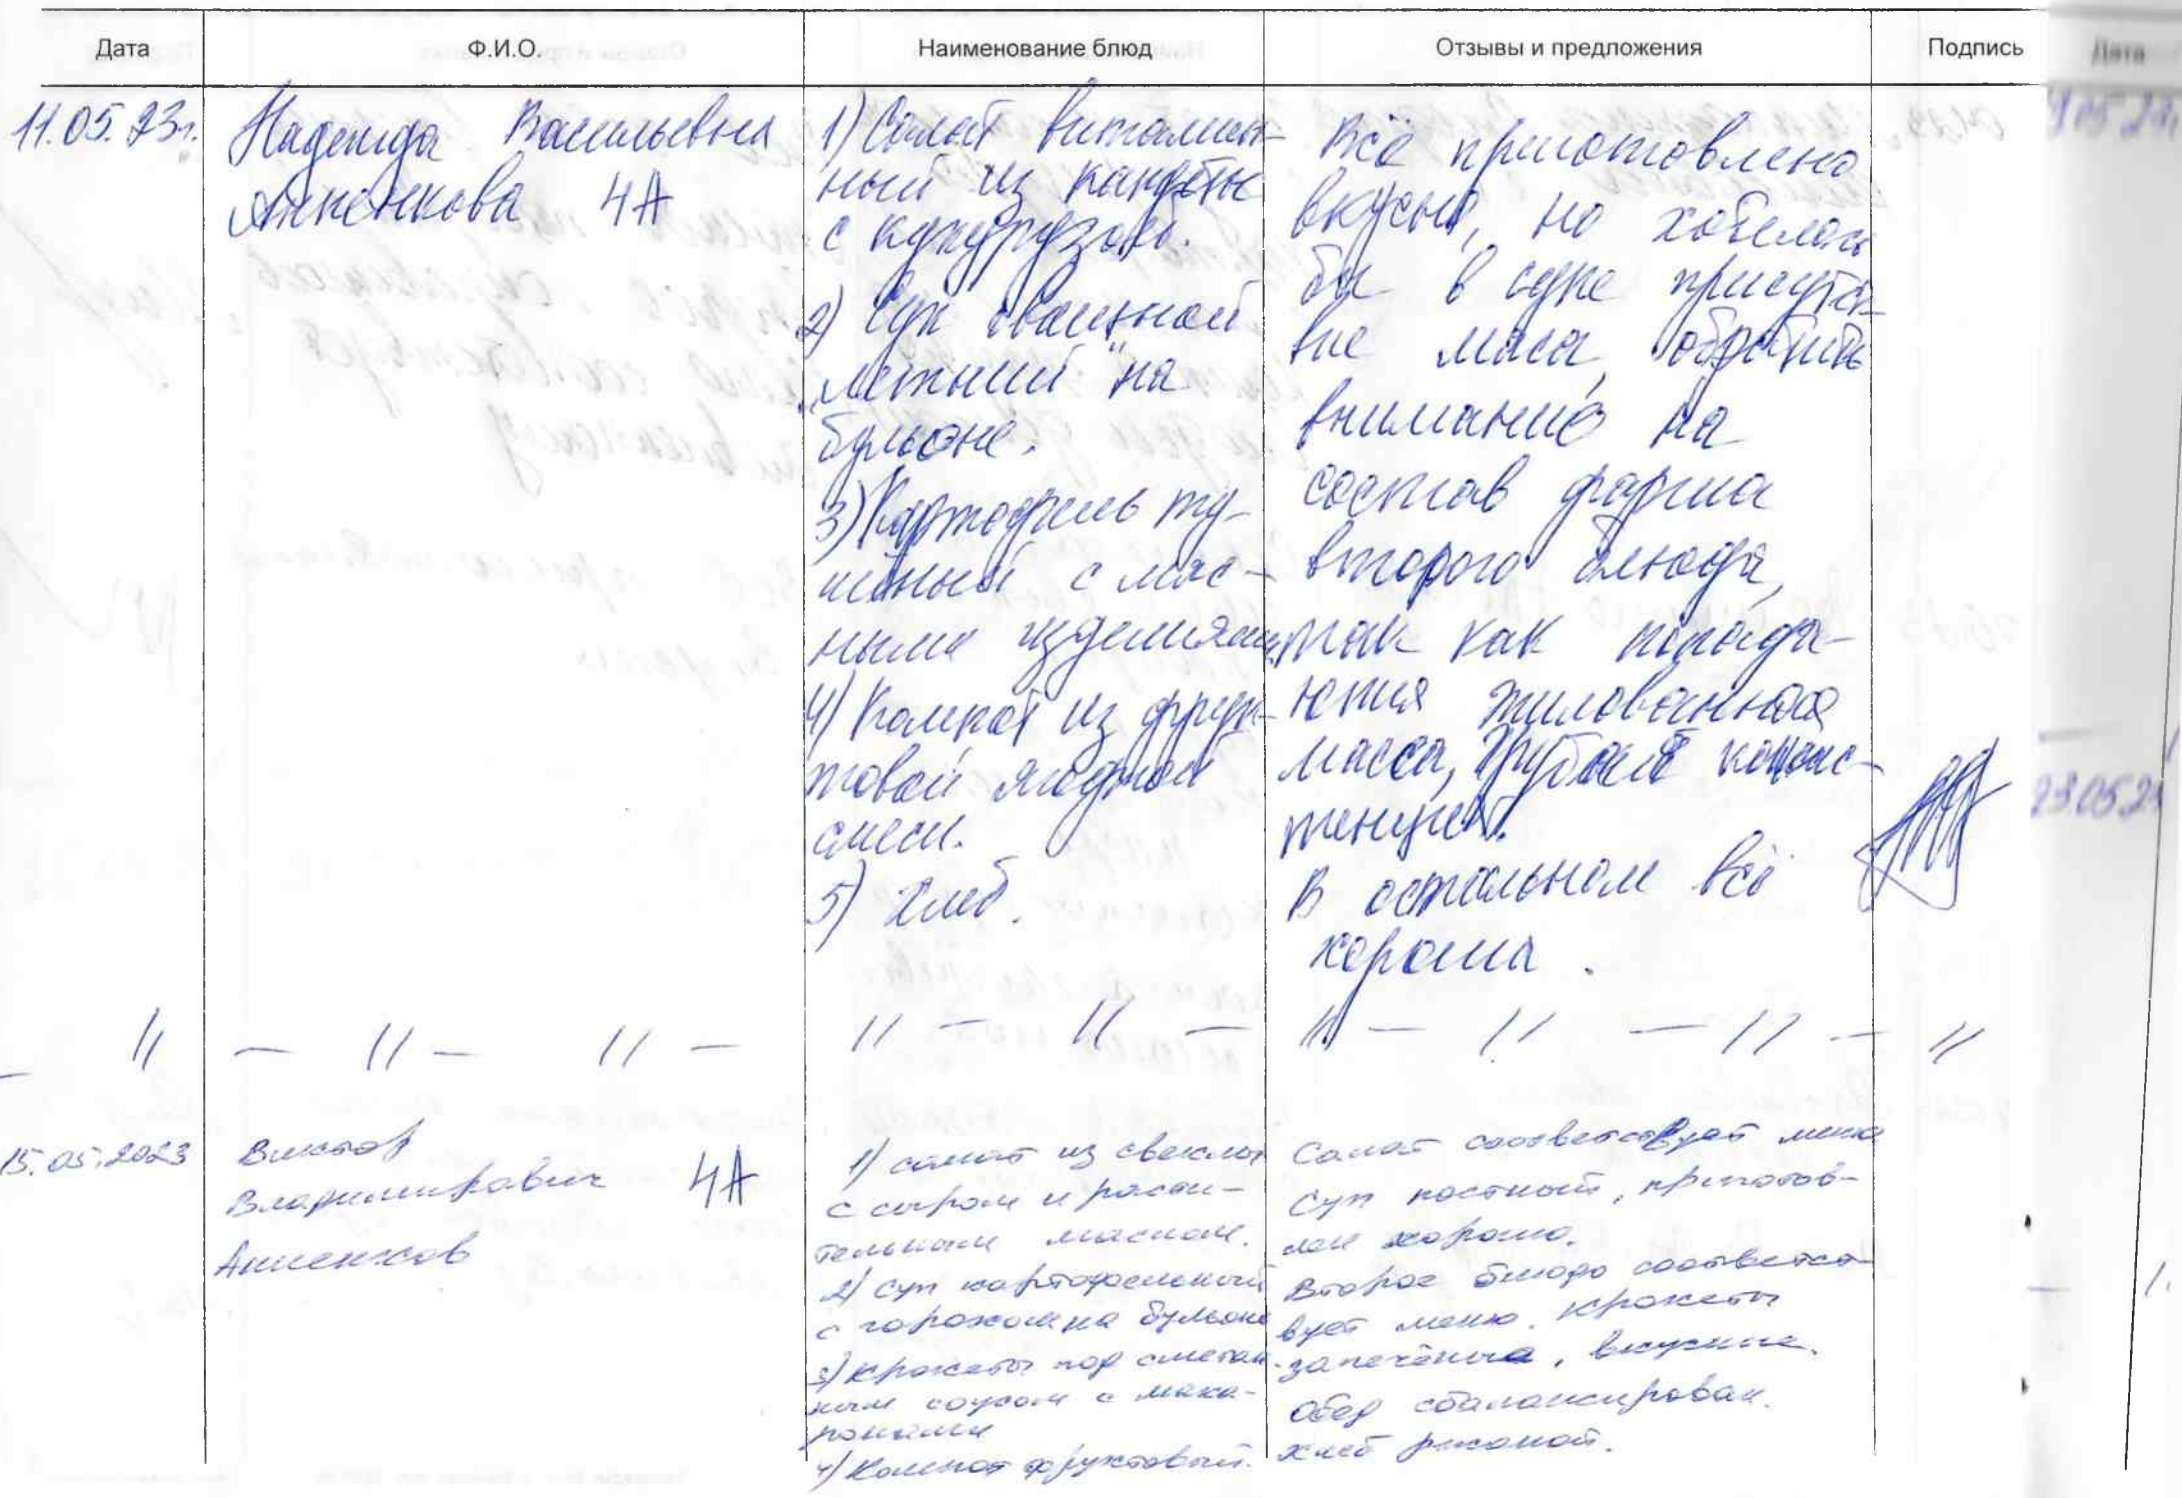 Дата Ф.И.О. Наименование блюд Отзывы и предложения Подпись
11.05.23г.
Надежда Васильевна
Анненкова 4А
1) Салат витамин-
ный из капусты
с кукурузой.
2) Суп овощной
„летний" на
бульоне.
3) Картофель ту-
шёный с мяс-
ными изделиями.
4) Компот из фрук-
товой ягодной
смеси.
5) Хлеб.
Всё приготовлено
вкусно, но хотелось
бы в супе присутст-
вие мяса, обратить
внимание на
состав фарша
второго блюда,
так как попада-
ются жилованная
масса, грубой консис-
тенцией.
В остальном всё
хорошо.
11 — 11 — 11 — 11 — 11 — 11 — 11 — 11 — 11
15.05.2023
Виктор
Владимирович 4А
Анненков
1) салат из свеклы
с сыром и расти-
тельным маслом.
2) Суп картофельный
с горохом на бульоне
3) крокеты под сметан-
ным соусом с мака-
ронами
4) Компот фруктовый.
Салат соответствует меню
Суп постный, приготов-
лен хорошо.
Второе блюдо соответст-
вует меню. Крокеты
запечёные, вкусные.
Обед сбалансирован.
хлеб ржаной.
Дата
23.05.23